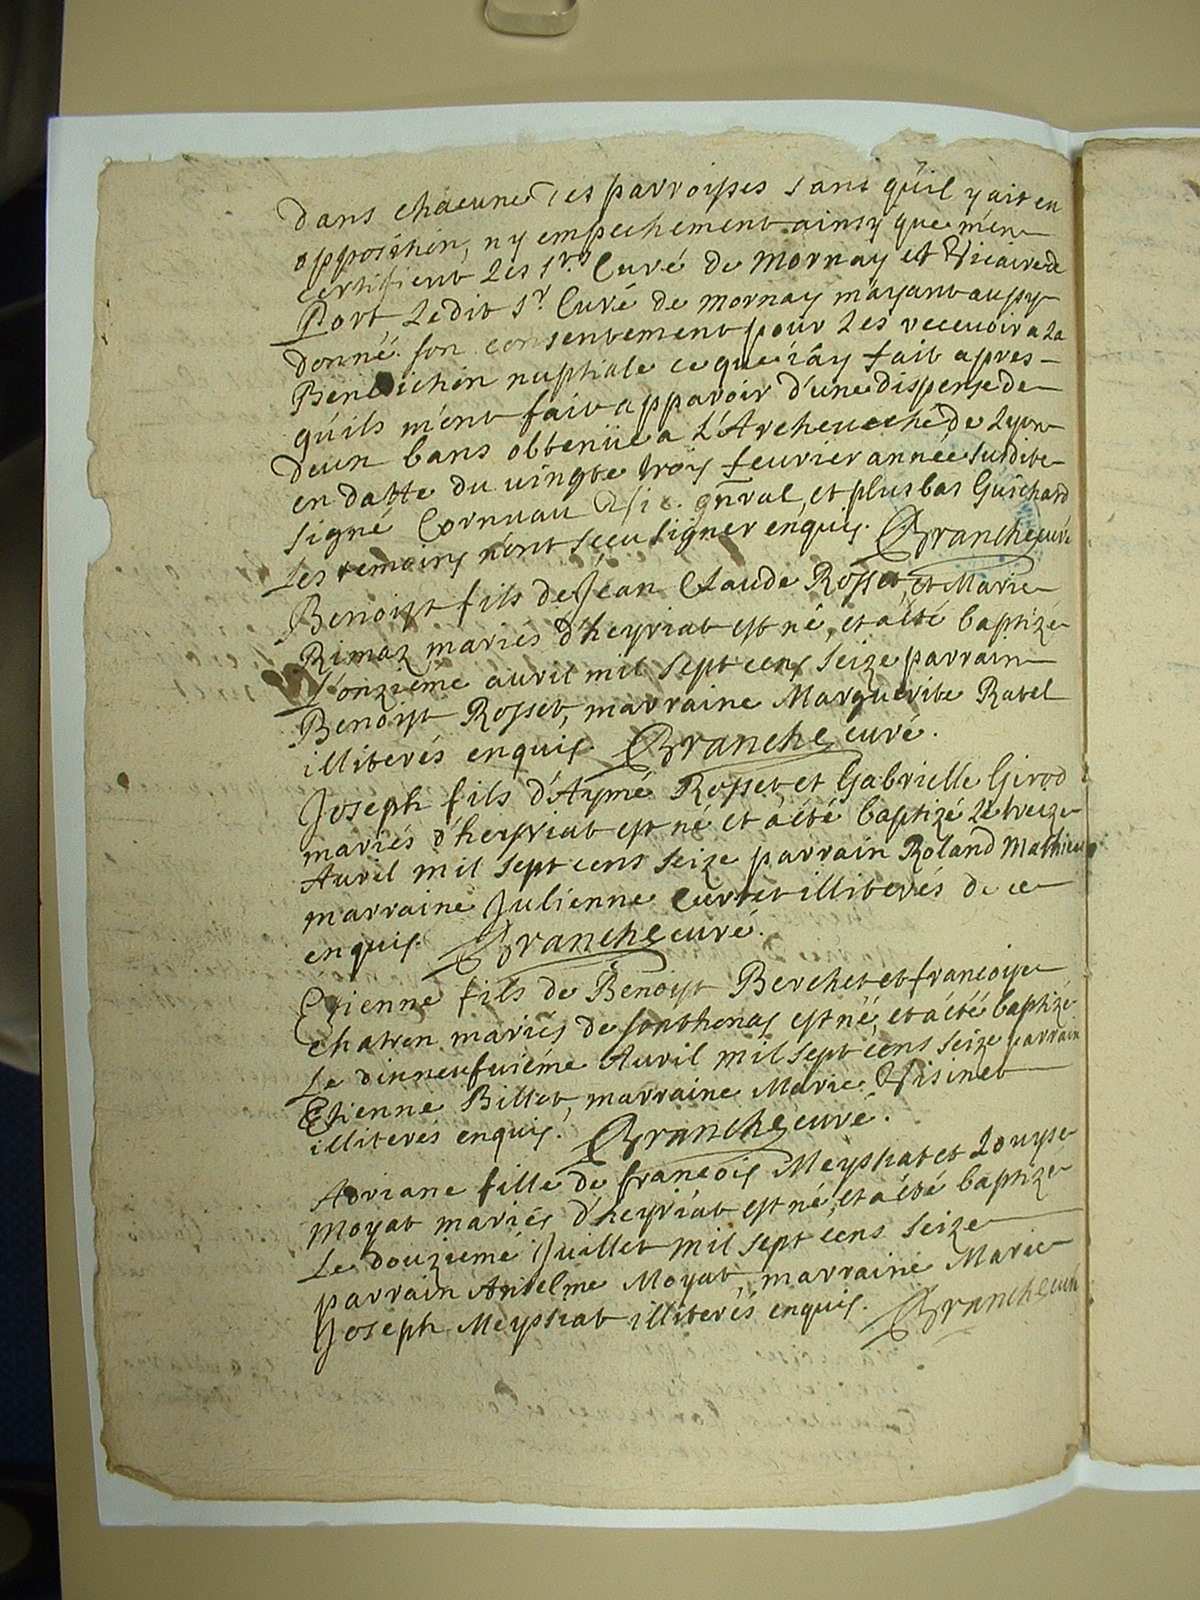 dans chacune des parroisses sans qu'il y ait eu
opposition, ny empechement ainsy que m'en
certifient Les srs Curé de Mornay et Vicaire de
Port, Ledit sr Curé de mornay m'ayant aussy
donné son consentement pour Les recevoir a La
Benediction nuptiale ce que j'ay fait apres
qu'ils m'ont fait apparoir d'une dispense de
deux bans obtenüe a L'Archeueché de Lyon
en datte du vingte trois feurier année susdite
signé Cornuau Vic. gnral, et plus bas Guichard
Les temoins n'ont sceu signer enquis. Branche curé
Benoist fils de Jean Claude Rosset, et Marie
Rimaz mariés d'heyriat est né, et a été baptizé
L'onziéme avril mil sept cens seize parrain
Benoist Rosset, marraine Marguerite Ravel
illiterés enquis Branche curé.
Joseph fils d'Aymé Rosset et Gabrielle Girod
mariés d'heyriat est né et a été baptizé Le treize
Avril mil sept cens seize parrain Roland Mathieu
marraine Julienne Curtet illiterés de ce
enquis. Branche curé.
Etienne fils de Benoist Berchet et francoise
chatron mariés de sonthonas est né, et a été baptizé
Le dinneufuiéme Avril mil sept cens seize parrain
Etienne Billet, marraine Marie Visinet
illiterés enquis. Branche curé.
Adriane fille de francois Meyssiat et Louyse
Moyat mariés d'heyriat est né, et a été baptizé
Le douziemé Juillet mil sept cens seize
parrain Antelme Moyat, marraine Marie
Joseph Meyssiat illiterés enquis. Branche curé